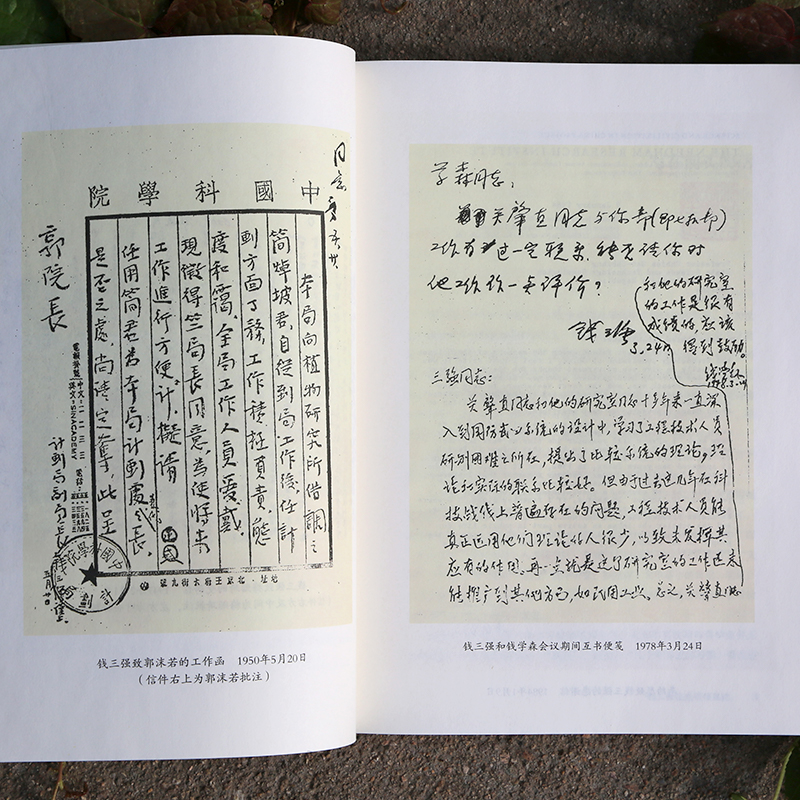 同意
中國科學院
本局向植物研究所借調之
簡焯坡君，自從到局工作後，任計
劃方面丁務，工作積極負責，態
度和靄，全局工作人員爱戴。
現徵得竺局長同意，為使將来
工作進行方便計，擬請
任用簡君為本局計劃處處長。
是否之處，尚請定奪，此呈
郭院長
計劃局副局長錢三强
五月廿日
地址·北京王府大街九號
钱三强致郭沫若的工作函 1950年5月20日
（信件右上为郭沫若批注）
学森同志：
关肇直同志与你部（即七机部）
工作有过一定联系，能否请你对
他工作给一点评价？
钱三强
3.24日
和他的研究室
的工作是很有
成绩的，应该
得到鼓励。
钱学森
三强同志：
关肇直同志和他的研究室同志十多年来一直深
入到国防武器系统的设计中，学习了工程技术人员
所到困难之所在，提出了比较系统的理论，理
论和实际的联系比较好。但由于过去这几年在科
技战线上普遍存在的问题，工程技术人员能
真正运用他们理论的人很少，以致未发挥其
应有的作用。再一点就是这个研究室的工作还未
能推广到其他方面，如民用工业。总之，关肇直同志
钱三强和钱学森会议期间互书便笺 1978年3月24日